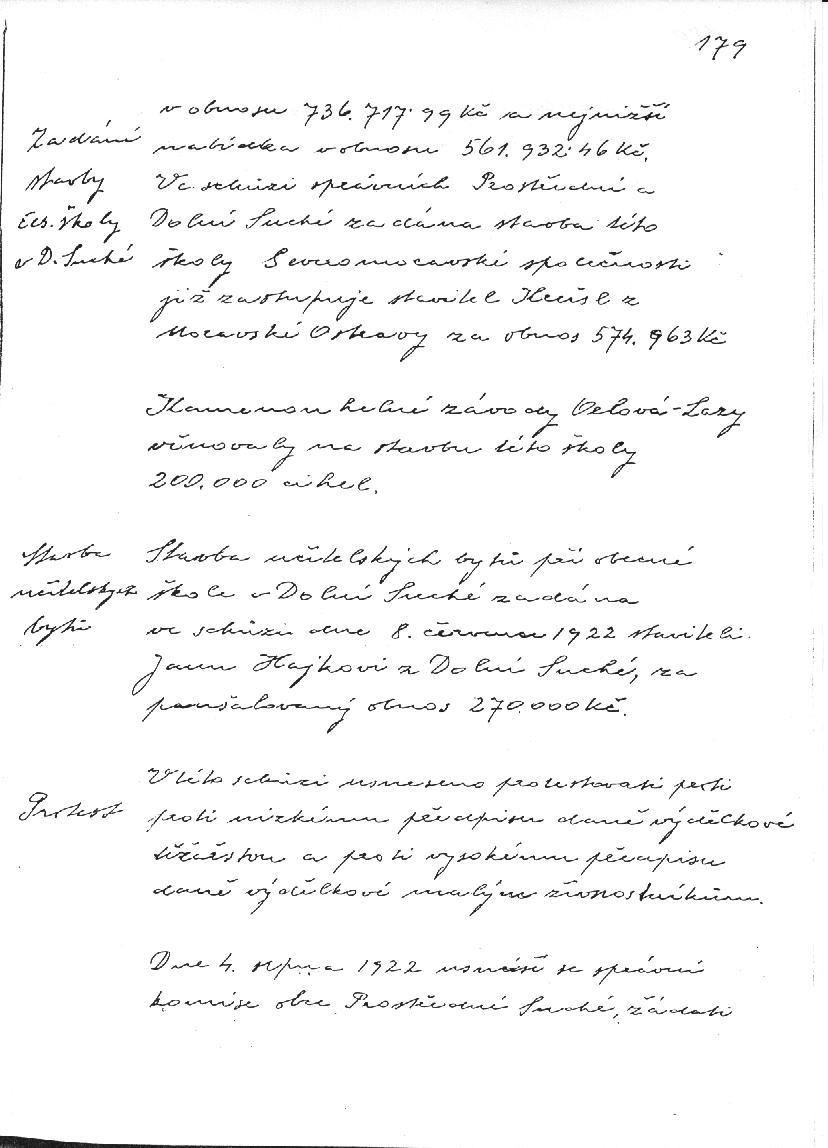 179
v obnosu 736.717·99 Kč a nejnižší
Zadání
nabídka v obnosu 561.932·46 Kč.
stavby
Ve schůzi správních Prostřední a
čes. školy
Dolní Suché zadána stavba této
v D. Suché
školy Severomoravské společnosti
již zastupuje stavitel z
Moravské Ostravy za obnos 574.963 Kč
Kamenouhelné závody Orlová-Lazy
věnovaly na stavbu této školy
200.000 cihel.
Stavba
Stavba učitelských bytů při obecné
učitelských
škole v Dolní Suché zadána
bytů
ve schůzi dne 8. července 1922 staviteli
Janu Hajkovi z Dolní Suché, za
paušalovaný obnos 270.000 Kč.
V této schůzi usneseno protestovati proti
Protest
proti nízkému předpisu daně výdělkové
těžařstvu a proti vysokému předpisu
daně výdělkové malým živnostníkům.
Dne 4. srpna 1922 usnáší se správní
komise obce Prostřední Suché, žádati